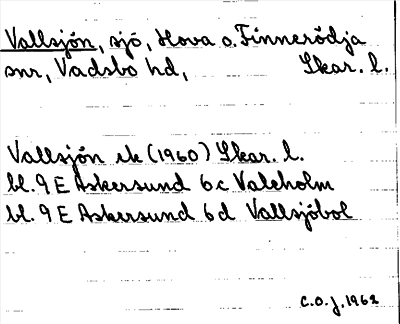 Vallsjön, sjö, Hova o. Finnerödja
snr, Vadsbo hd, Skar. l.
Vallsjön ek (1960) Skar. l.
bl. 9 E Askersund 6 c Valeholm
bl. 9 E Askersund 6 d Vallsjöbol
C.O.J. 1962